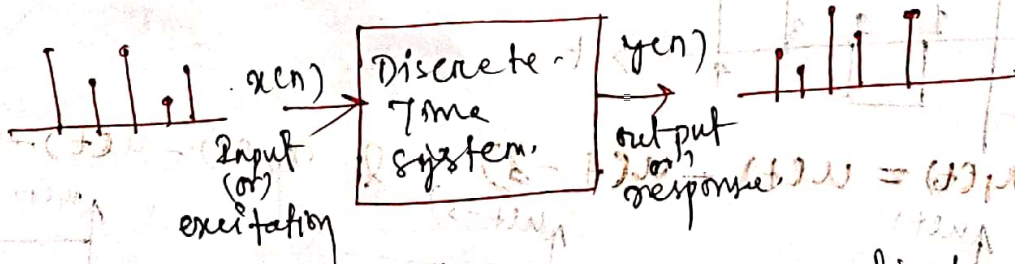 x(n)
Input
(or)
excitation
Discrete-
Time
system.
y(n)
output
or)
response.